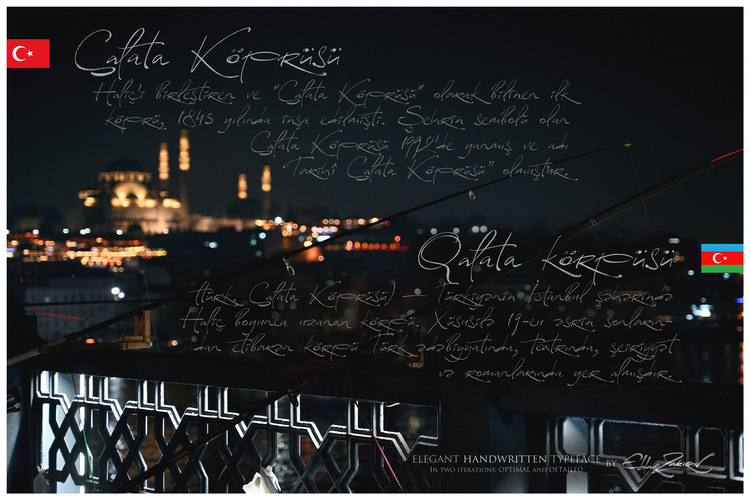 Galata Köprüsü
Haliç'i birleştiren ve "Galata Köprüsü" olarak bilinen ilk
köprü, 1845 yılında inşa edilmişti. Şehrin sembolü olan
Galata Köprüsü 1992'de yanmış ve adı
"Tarihî Galata Köprüsü" olmuştur.
Qalata körpüsü
(türk. Galata Köprüsü) — Türkiyənin İstanbul şəhərində
Haliç boyunca uzanan körpü. Xüsusilə 19-cu əsrin sonların-
dan etibarən körpü Türk ədəbiyyatında, teatrında, şeiriyyət
və romanlarında yer almışdır.
ELEGANT HANDWRITTEN TYPEFACE BY
IN TWO ITERATIONS: OPTIMAL AND DETAILED